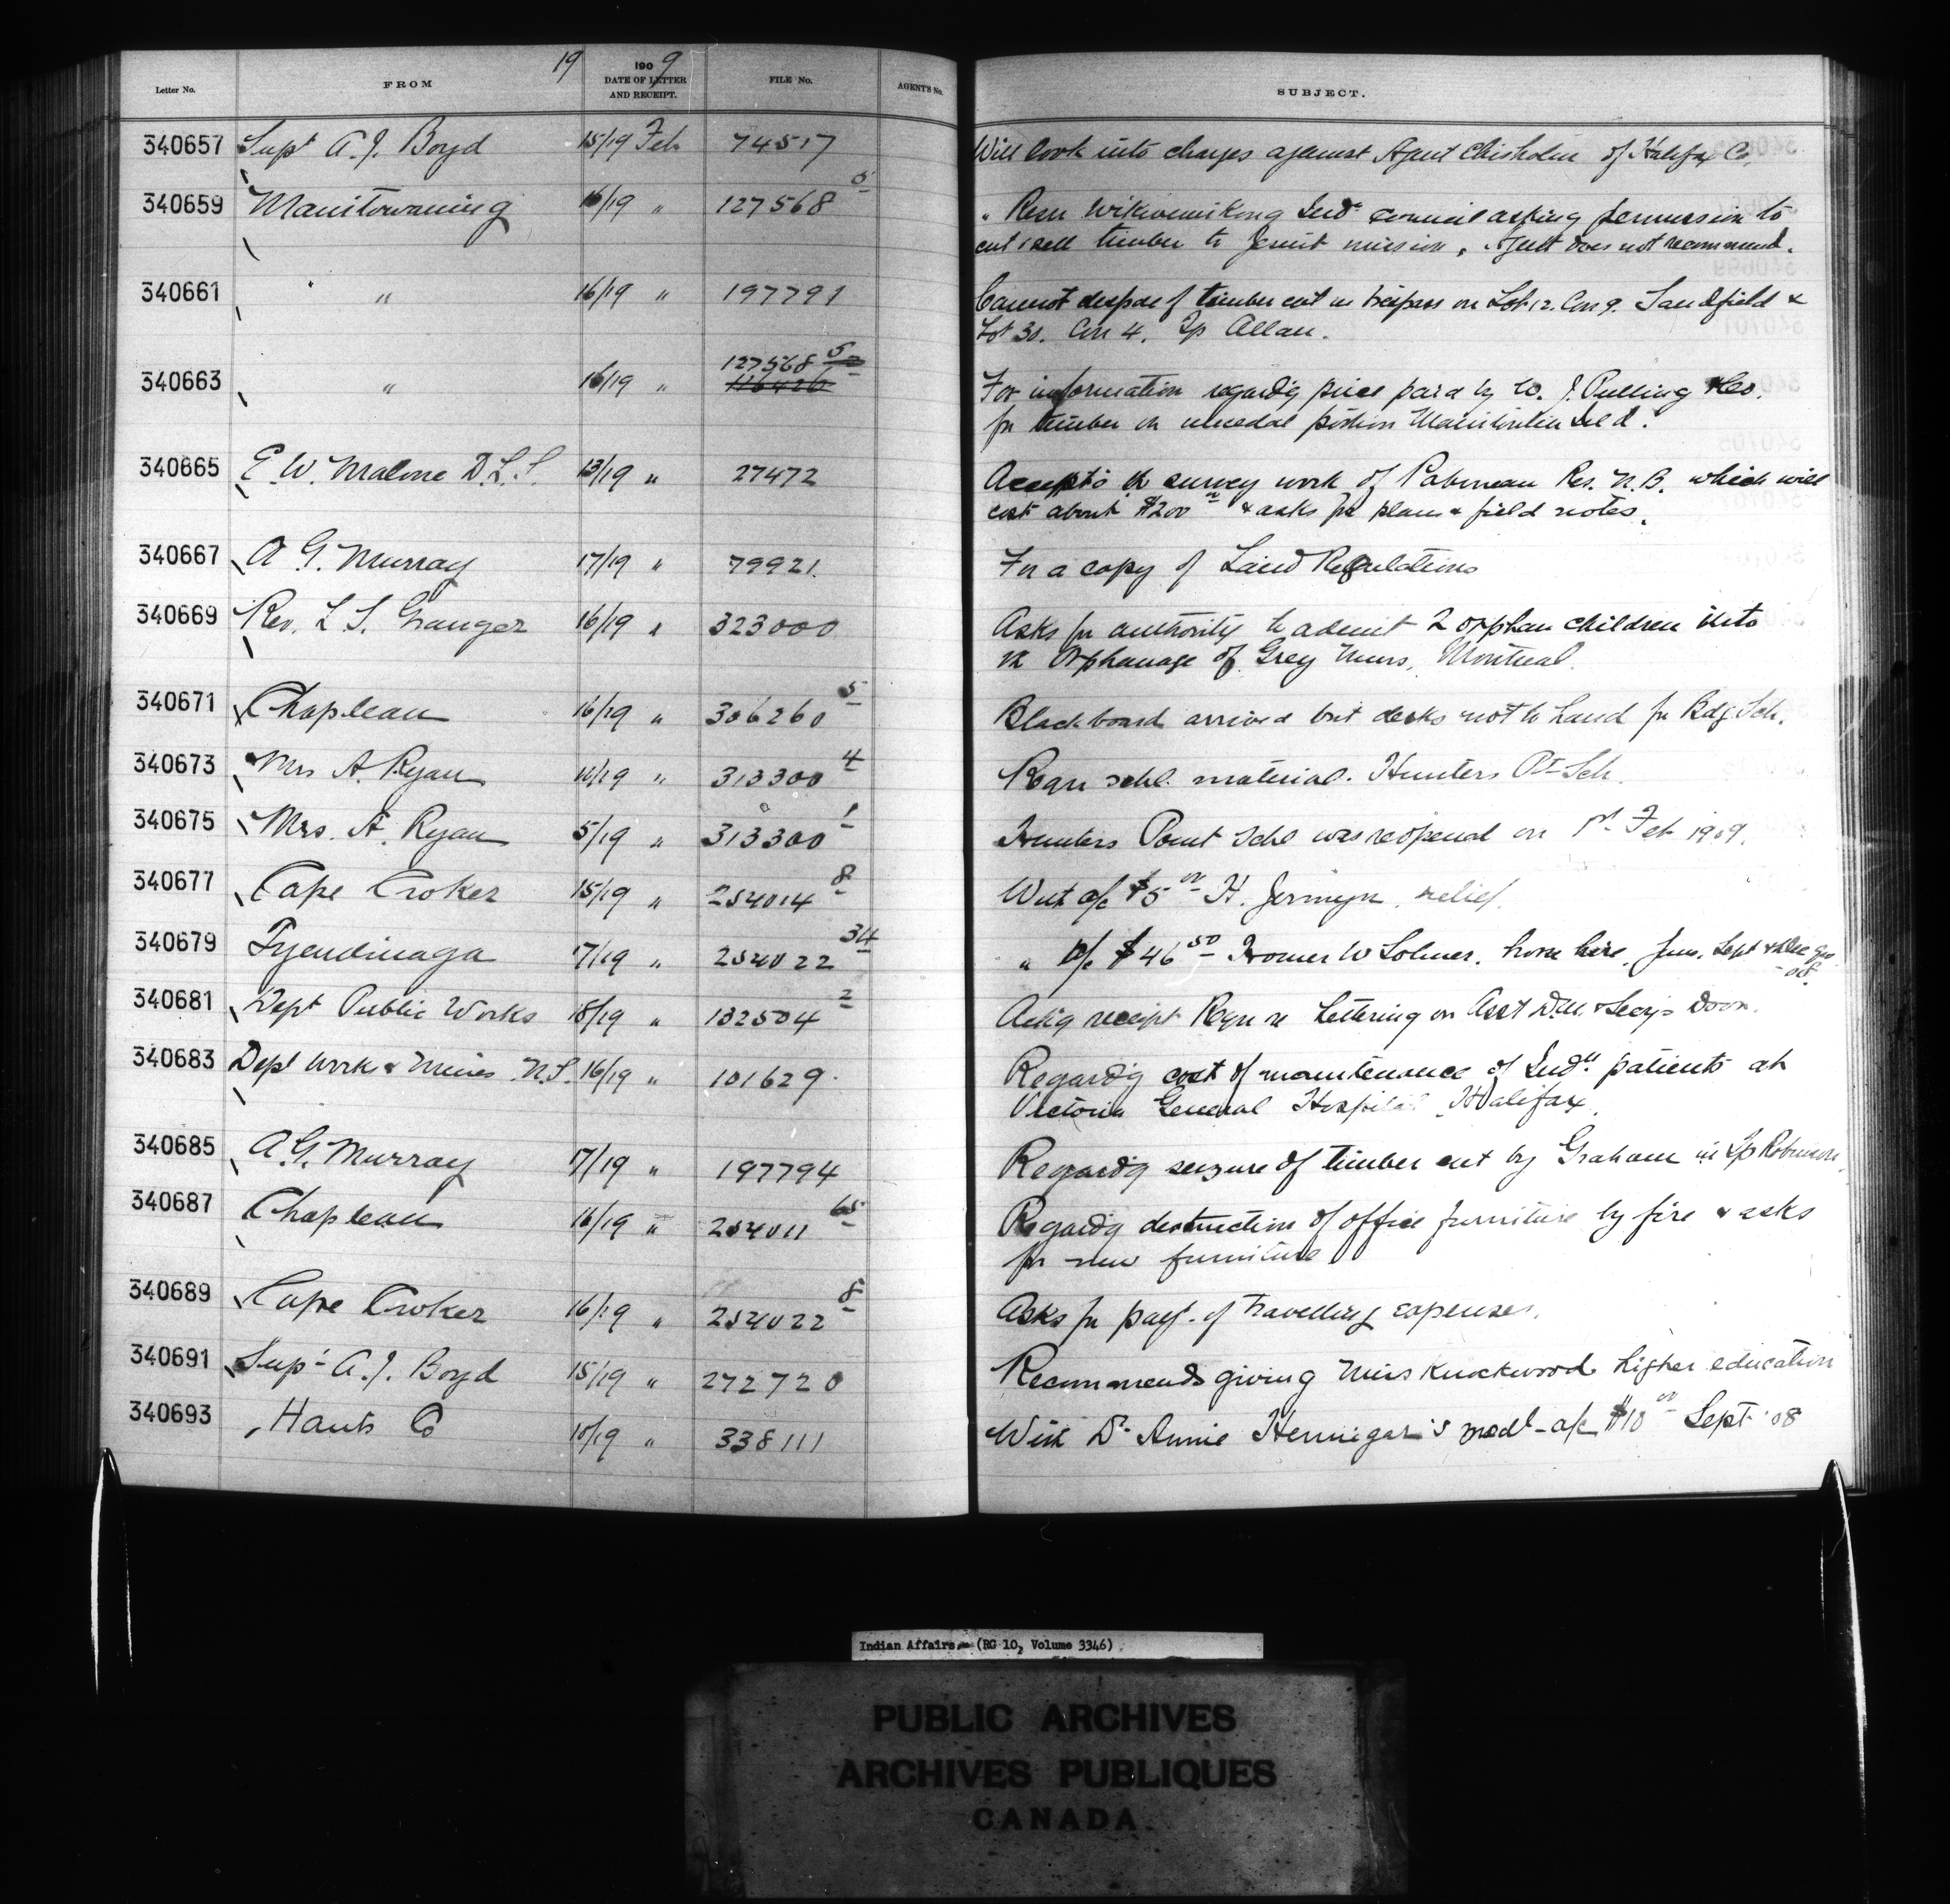 19
Letter No. FROM 1909 DATE OF LETTER AND RECEIPT. FILE No. AGENT'S No. SUBJECT.
340657 Supt A. J. Boyd 15/19 Feb 74517 Will look into charges against Agent Chisholm of Halifax Co.
340659 Manitowaning 16/19 " 127568 5 " Resn Wikwemikong Inds council asking permission to
cut & sell timber to Jesuit mission, Agent does not recommend.
340661 " 16/19 " 197791 Cannot dispose of timber cut in trespass on Lot 12. Con 9. Sandfield &
Lot 30. Con 4. Tp Allan.
340663 " 16/19 " 127568 5 For information regardg price paid by W. J. Pulling & Co.
116426
for timber on unceded portion Manitoulin Isld.
340665 E. W. Malone D.L.S. 13/19 " 27472 Accepts survey work of Pabineau Res. N.B. which will
cost about $200 00 & asks for plans & field notes.
340667 A G. Murray 17/19 " 79921. For a copy of Land Regulations
340669 Rev. L. S. Granger 16/19 " 323000 Asks for authority to admit 2 orphan children into
the Orphanage of Grey Nuns, Montreal.
340671 Chapleau 16/19 " 306260 5 Blackboard arrived but desks not to hand for Bdg Sch.
340673 Mrs A. Ryan 16/19 " 313300 4 Reqn schl. material. Hunters Pt Sch.
340675 Mrs. A. Ryan 5/19 " 313300 1 Hunters Point Schl was reopened on 1st Feb 1909.
340677 Cape Croker 15/19 " 254014 8 With a/c $5 00 H. Jermyn, relief.
340679 Tyendinaga 17/19 " 254022 34 " a/c $46 50 Homer W Solmes. horse hire, June, Sept & Dec qrs
08.
340681 Dept Public Works 18/19 " 132504 2 Ackg receipt Reqn re Lettering on Asst D.M. & Secy's Door.
340683 Dept Works & Mines N.S. 16/19 " 101629. Regardg cost of maintenance of Inds patients at
Victoria General Hospital, Halifax.
340685 A. G. Murray 17/19 " 197794 Regardg seizure of timber cut by Graham in Tp Robinson.
340687 Chapleau 16/19 " 254011 65 Regardg destruction of office furniture by fire & asks
for new furniture
340689 Cape Croker 16/19 " 254022 8 Asks for payt. of travelling expenses.
340691 Supt A. J. Boyd 15/19 " 272720 Recommends giving Miss Knockwood higher education
340693 Hants Co 10/19 " 338111 With Dr. Annie Hennigar's medl a/c $10 00 Sept '08
Indian Affairs. (RG 10, Volume 3346)
PUBLIC ARCHIVES
ARCHIVES PUBLIQUES
CANADA